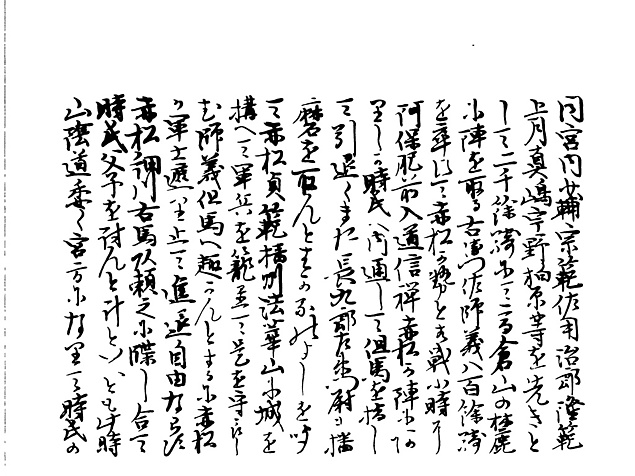 同宮内少輔宗範佐用治部隆範
上月真嶋宇野柏原等を先きと
して二千餘騎にて高倉山の林麓
に陣を取る右衛門佐師義八百餘騎
を率して赤松か勢と戦小時
阿保肥前入道信禅赤松か陣に
しか時氏へ内通して但馬を捨
て引退くまた長九郎左衛門尉も播
磨を取んとするのよしを聞
て赤松貞範播州法華山に城を
構へて軍兵を籠置て是を守らし
む師義但馬へ趣かんとするに赤松
か軍士遮り止て進退自由ならす
赤松讃州右馬頭頼之に牒し合て
時氏父子を討んと計といとも時
山陰道悉く宮方になりて時氏の